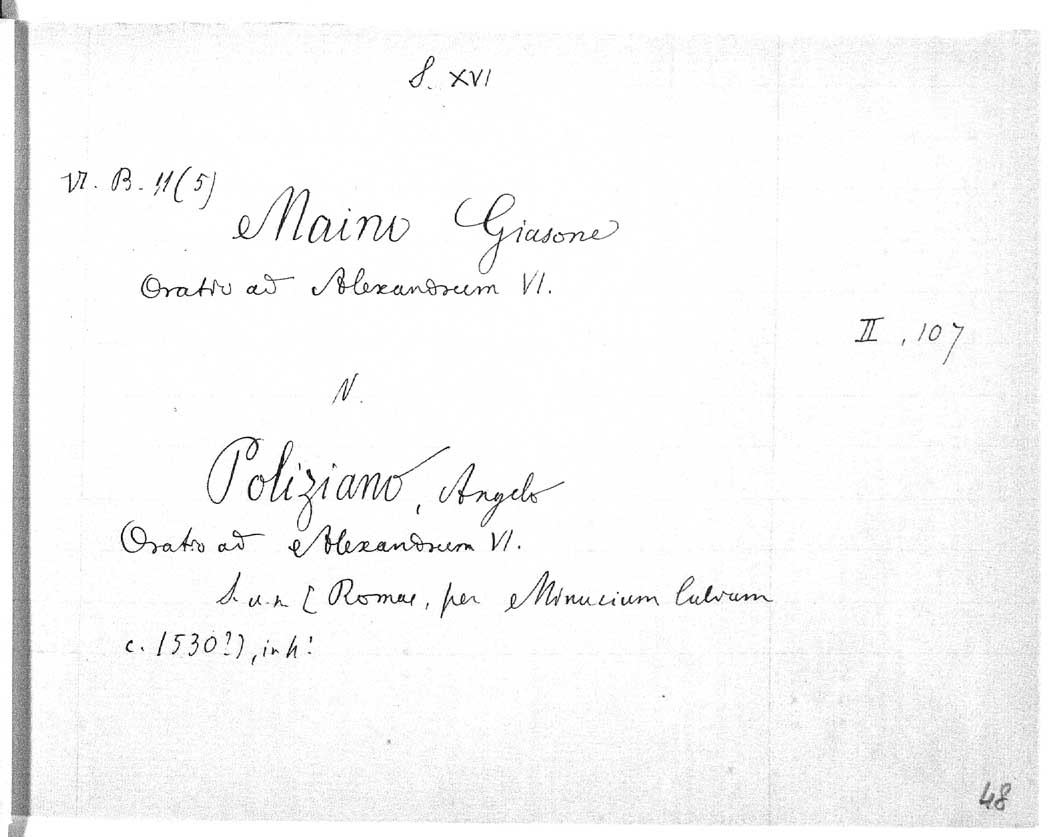 S. XVI
VI. B. 11(5)
Maino Giasone
Oratio ad Alexandrum VI.
II, 107
V.
Poliziano, Angelo
Oratio ad Alexandrum VI.
S. u. n. [Romae, per Minucium Calvum
c. 1530?), in 4°
48